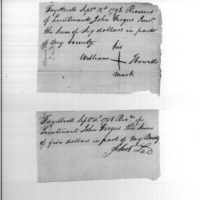 Fayettville Sept. 12th 1798 Received
of Lieutenant John Fergus Jun.
the Sum of Six dollars in part
of my bounty
his
William + Howell
mark
Fayettville Sept. 1798 Recd. of
Lieutenant John Fergus the Sum
of five dollars in part of my Bounty
John Lee